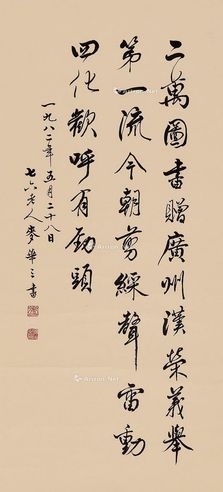 二萬圖書贈廣州漢榮義舉
第一流今朝剪綵聲雷動
四化歡呼有勁頭
一九八二年五月二十八日
七六老人麥華三書